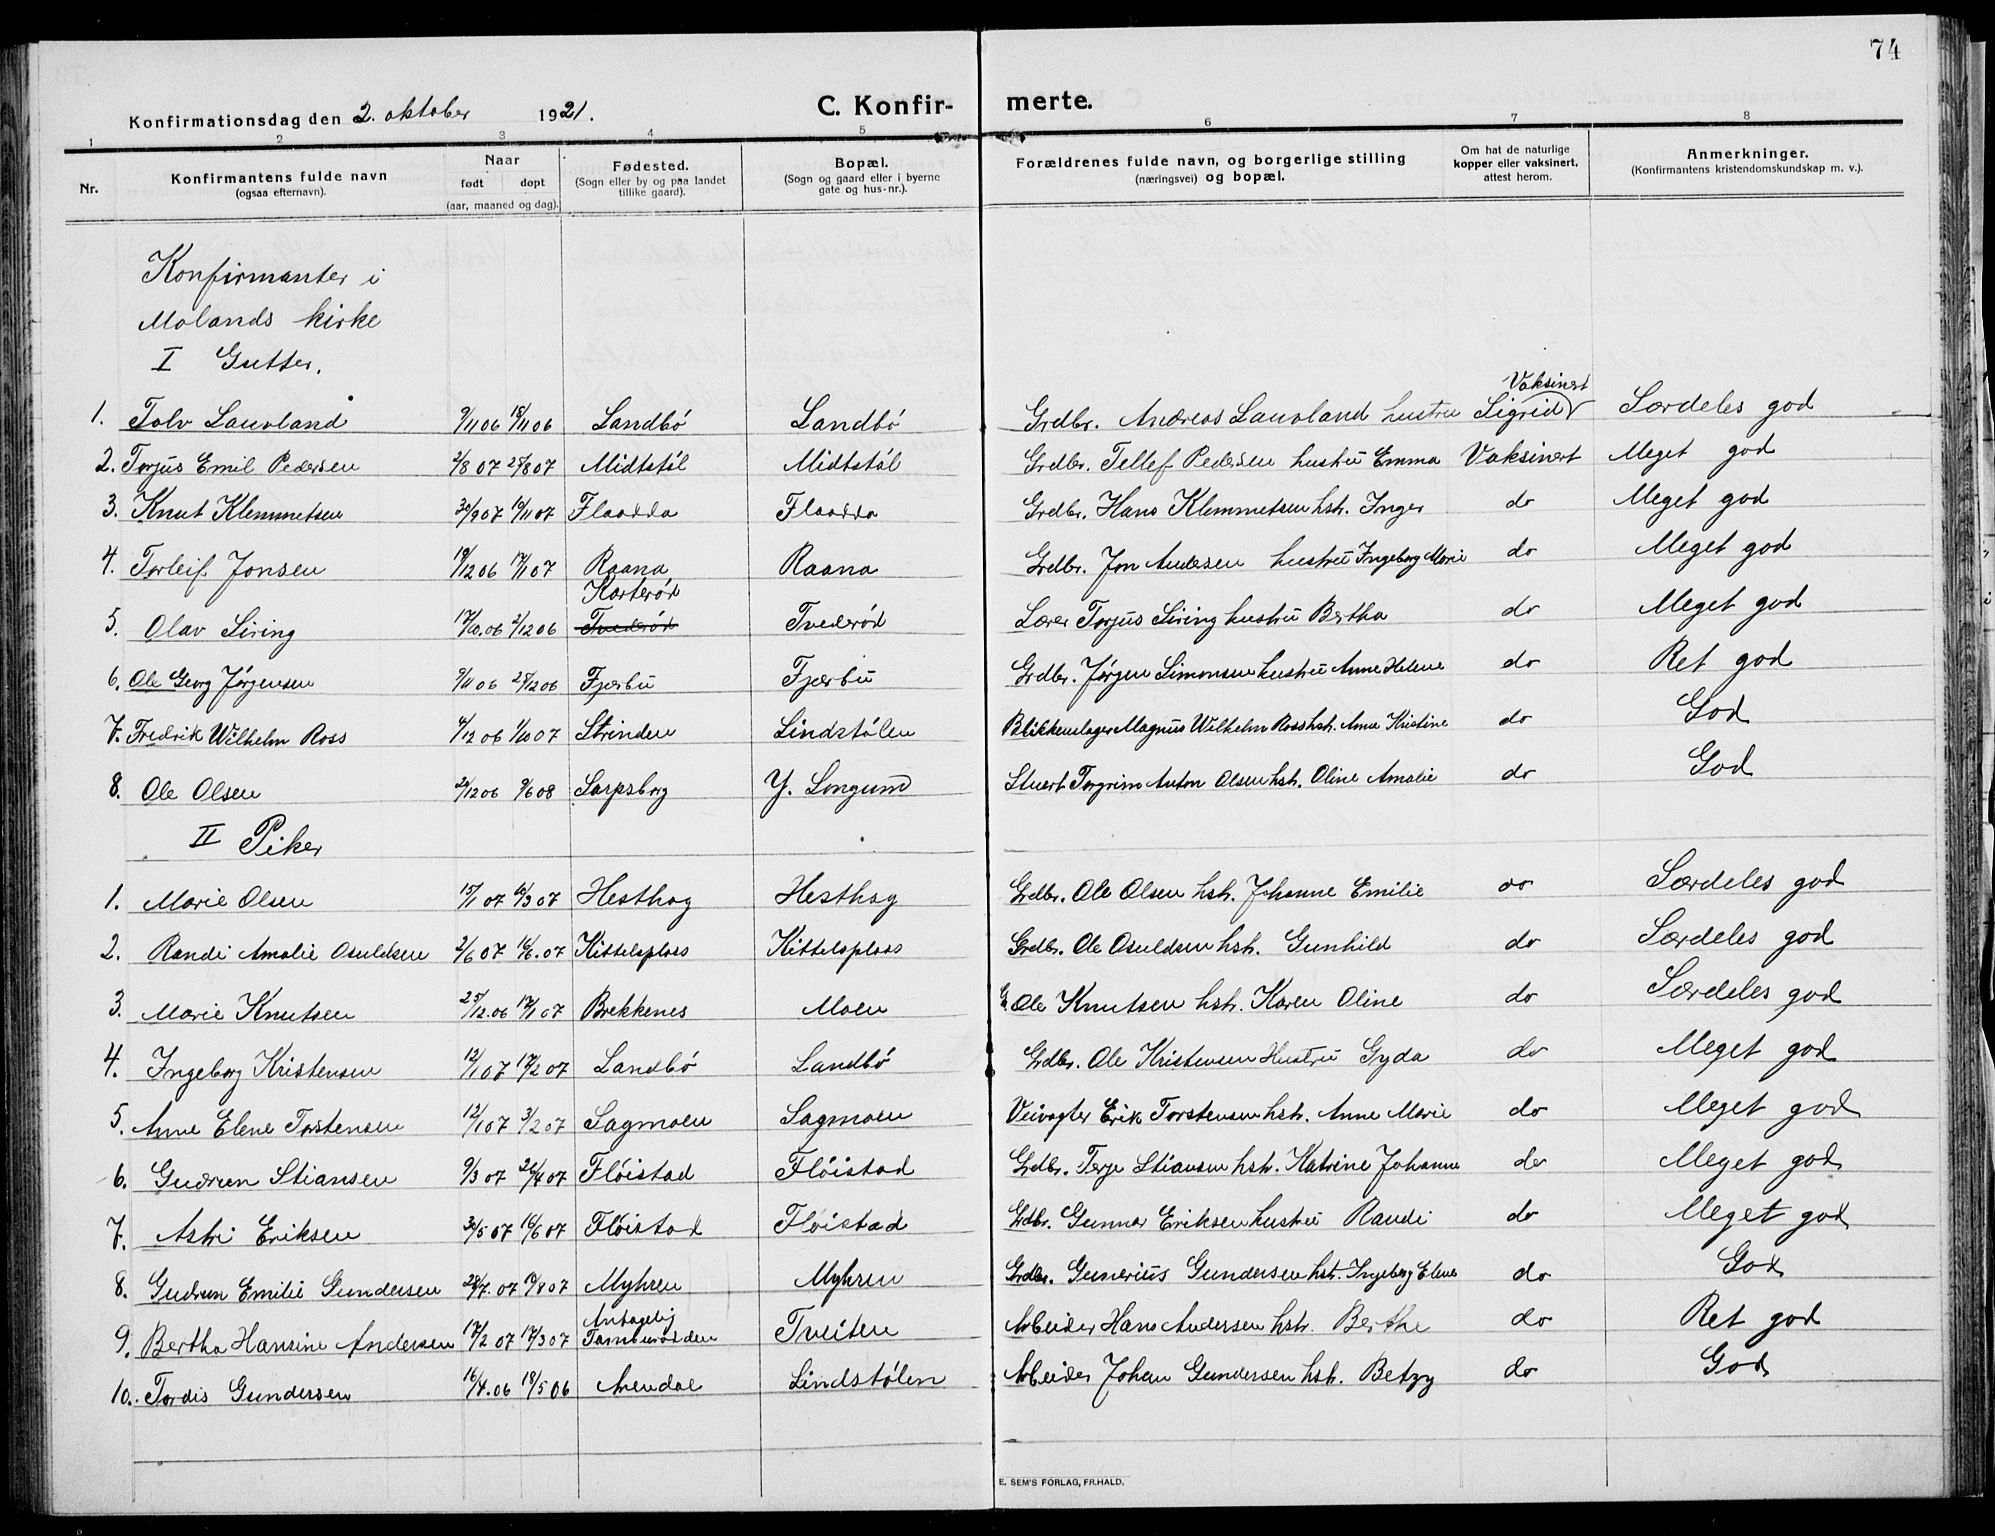 74
Konfirmationsdag den 2. oktober 1921. C. Konfirmerte.
1 2 3 4 5 6 7 8
Nr. Konfirmantens fulde navn (ogsaa efternavn). Naar født døpt (aar, maaned og dag). Fødested. (Sogn eller by og paa landet tillike gaard). Bopæl. (Sogn og gaard eller i byerne gate og hus-nr.). Forældrenes fulde navn, og borgerlige stilling (næringsvei) og bopæl. Om hat de naturlige kopper eller vaksinert, attest herom. Anmerkninger. (Konfirmantens kristendomskundskap m. v.).
Konfirmanter i
Molands kirke
I Gutter.
1. Tolv Lauvland 9/11 06 18/11 06 Landbö Landbö Grdbr. Andreas Lauvland hustru Sigrid Vaksinert Særdeles god
2. Torjus Emil Pedersen 2/8 07 25/8 07 Midtstøl Midtstøl Grdbr. Tellef Pedersen hustru Emma Vaksinert Meget god
3. Knut Klemmetsen 30/9 07 10/11 07 Flaadda Flaadda Grdbr. Hans Klemmetsen hstr. Inger do Meget god
4. Torleif Jonsen 19/12 06 17/1 07 Raana Raana Grdbr. Jon Andersen hustru Ingeborg Marie do Meget god
5. Olav Liring 17/10.06 2/12 06 Karterød Tvederød Tvederød Lærer Torjus Liring hustru Bertha do Meget god
6. Ole Georg Jørgensen 9/11 06 25/12 06 Fjærbu Fjærbu Grdbr. Jørgen Simonsen hustru Anne Helene do Ret god
7. Fredrik Wilhelm Ross 4/12 06 1/10 07 Strinden Lindstølen Blikkenslager Magnus Wilhelm Ross hstr. Anna Kristine do God
8. Ole Olsen 21/12 06 9/6 08 Sarpsborg Y. Longum Stuert Torgrim Anton Olsen hstr. Oline Amalie do God
II Piker
1. Marie Olsen 15/1 07 10/3 07 Hesthag Hesthag Grdbr. Ole Olsen hstr. Johanne Emilie do Særdeles god
2. Randi Amalie Osuldsen 2/6 07 16/6.07 Kittelsplass Kittelsplass Grdbr. Ole Osuldsen hstr. Gunhild do Særdeles god
3. Marie Knutsen 25/12.06 17/1 07 Brekkenes Moen G. Ole Knutsen hstr. Karen Oline do Særdeles god
4. Ingeborg Kristensen 12/1 07 17/2 07 Landbö Landbö Grdbr. Ole Kristensen Hustru Gyda do Meget god
5. Anne Elene Torstensen 12/1 07 3/2 07 Sagmoen Sagmoen Veivogter Erik Torstensen hstr. Anne Marie do Meget god
6. Gudrun Stiansen 9/3 07 26/4 07 Flöistad Flöistad Grdbr. Terje Stiansen hstr. Katrine Johanne do Meget god
7. Astri Eriksen 30/5 07 16/6 07 Flöistad Flöistad Grdbr. Gunnar Eriksen hustru Randi do Meget god
8. Gudrun Emilie Gundersen 28/7.07 18/8 07 Myhren Myhren Grdbr. Gunerius Gundersen hstr. Ingeborg Elene do God
9. Bertha Hansine Andersen 17/2 07 17/3 07 Tveiten Arbeider Hans Andersen hstr. Berthe do Ret god
10. Tordis Gundersen 16/4.06 18/5 06 Arendal Lindstølen Arbeider Johan Gundersen hstr. Betzy do God
E. SEM'S FORLAG, FR.HALD.